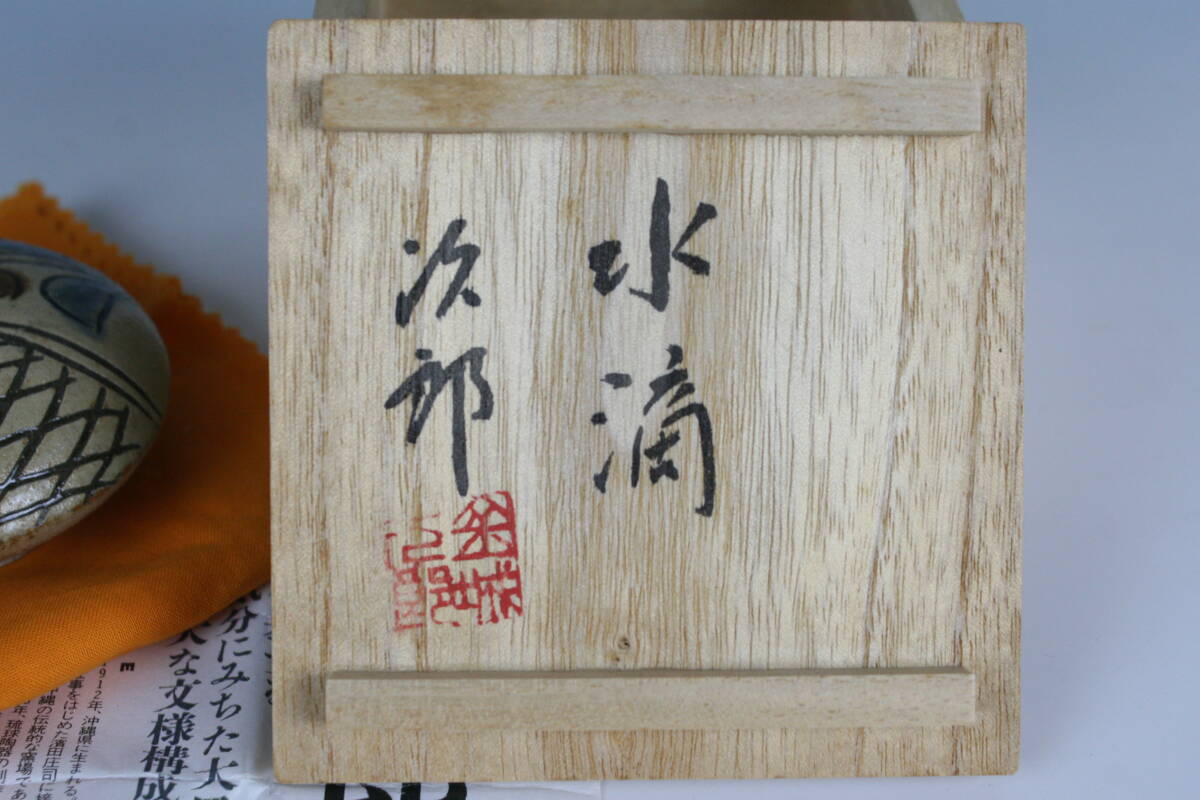 水滴
次郎
分にみちた大
大な文様構成
1912年、沖縄県に生まれる。
事をはじめた濱田庄司に接
沖縄の伝統的な窯場であ
年、琉球陶器の